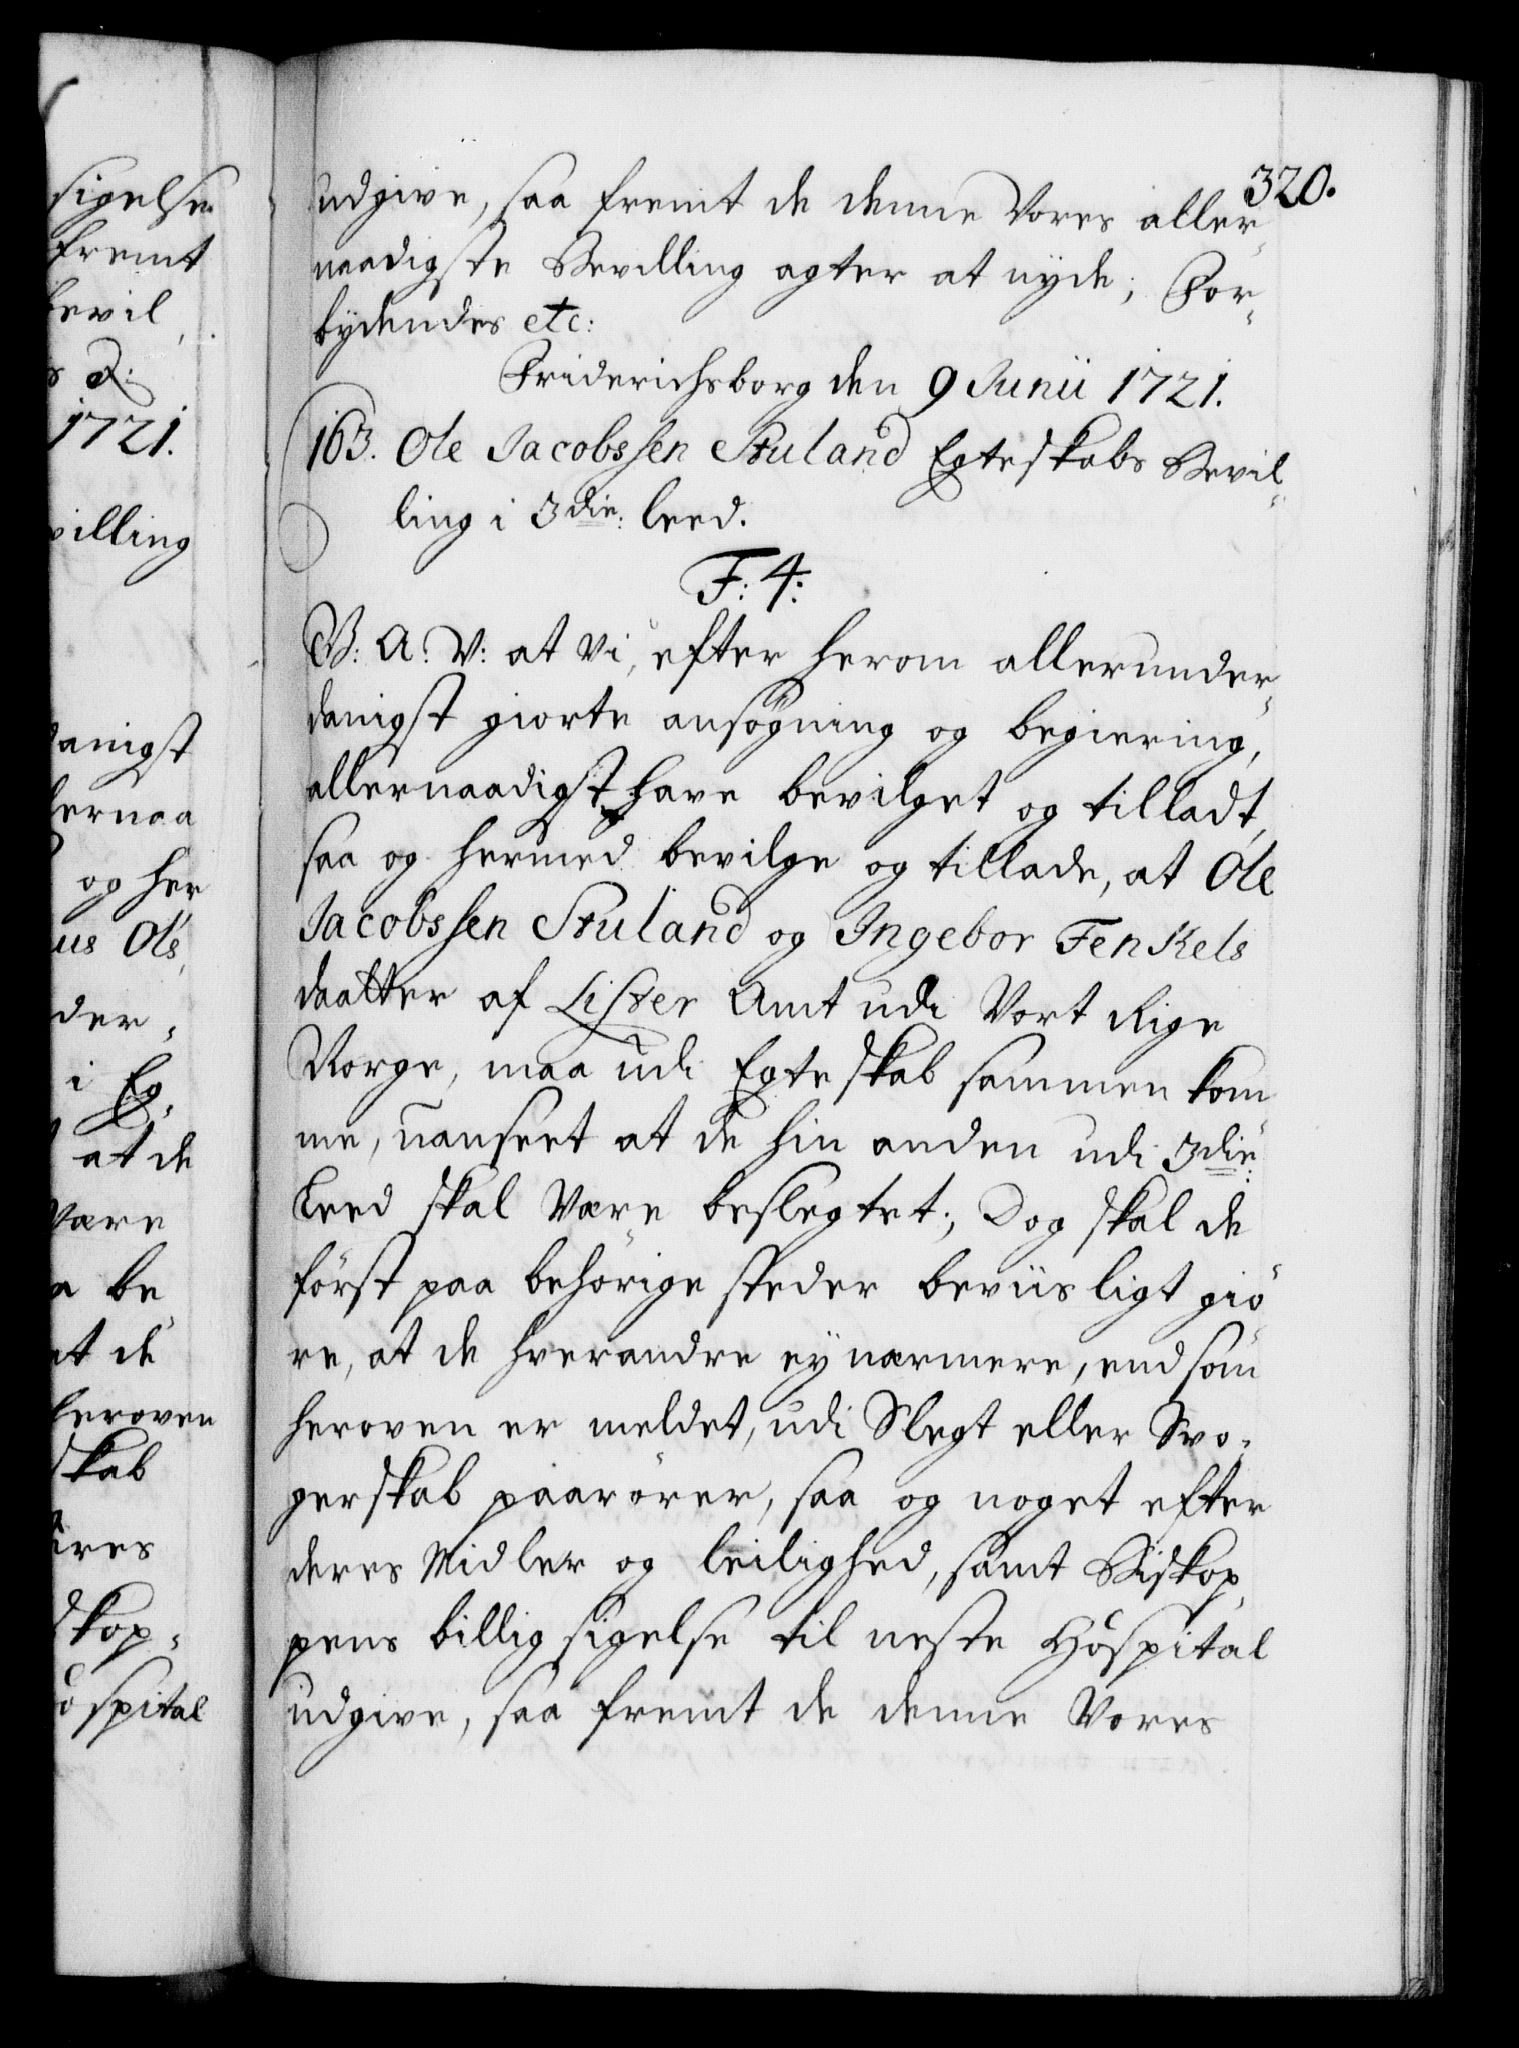 320.
udgive, saa fremt de denne Vores aller-
naadigste Bevilling agter at nyde; For-
bydendes etc:
Friderichsborg den 9 Junii 1721.
163. Ole Jacobssen Stuland Egteskabs Bevil-
ling i 3die: leed.
F: 4:
G: A: V: at vi, efter herom allerunder-
danigst giorte ansøgning og begiering,
allernaadigst have bevilget og tilladt,
saa og hermed bevilge og tillade, at Ole
Jacobssen Stuland og Ingebor Tenkels
daatter af Lister Amt udi Vort Rige
Norge, maa udi Egteskab sammen kom
me, uanseet at de hin anden udi 3die:
Leed skal være beslegtet; Dog skal de
först paa behörige steder beviisligt giö
re, at de hverandre ey nærmere, end som
heroven er meldet, udi Slegt eller Svo-
gerskab paarører, saa og noget efter
deres Midler og leilighed, samt Biskop
pens billig sigelse til neste Hospital
udgive, saa fremt de denne Vores
sigelse
fremt
bevil
1721.
villing
danigst
lernaa
og her
us Ols
der-
i Eg-
at de
være
be
at de
heroven
skab
skop-
ospital